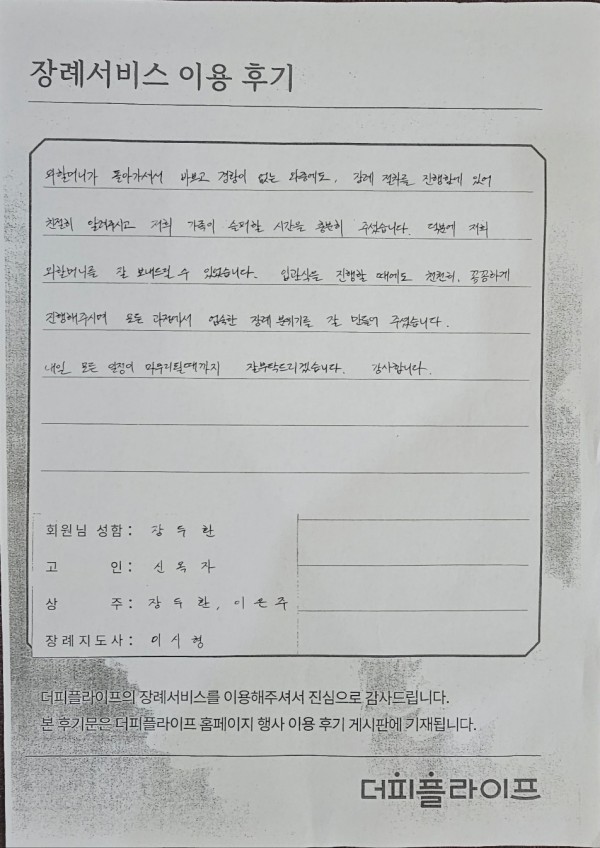 장례서비스 이용 후기
외할머니가 돌아가셔서 바쁘고 경황이 없는 와중에도, 장례 절차를 진행함에 있어
친절히 알려주시고 저희 가족이 슬퍼할 시간을 충분히 주셨습니다. 덕분에 저희
외할머니를 잘 보내드릴 수 있었습니다. 입관식을 진행할 때에도 천천히, 꼼꼼하게
진행해주시며 모든 과정에서 엄숙한 장례 분위기를 잘 만들어 주셨습니다.
내일 모든 일정이 마무리될때까지 잘부탁드리겠습니다. 감사합니다.
회원님 성함 : 장두환
고 인 : 신옥자
상 주 : 장두환, 이은주
장례지도사 : 이시형
더피플라이프의 장례서비스를 이용해주셔서 진심으로 감사드립니다.
본 후기문은 더피플라이프 홈페이지 행사 이용 후기 게시판에 기재됩니다.
더피플라이프